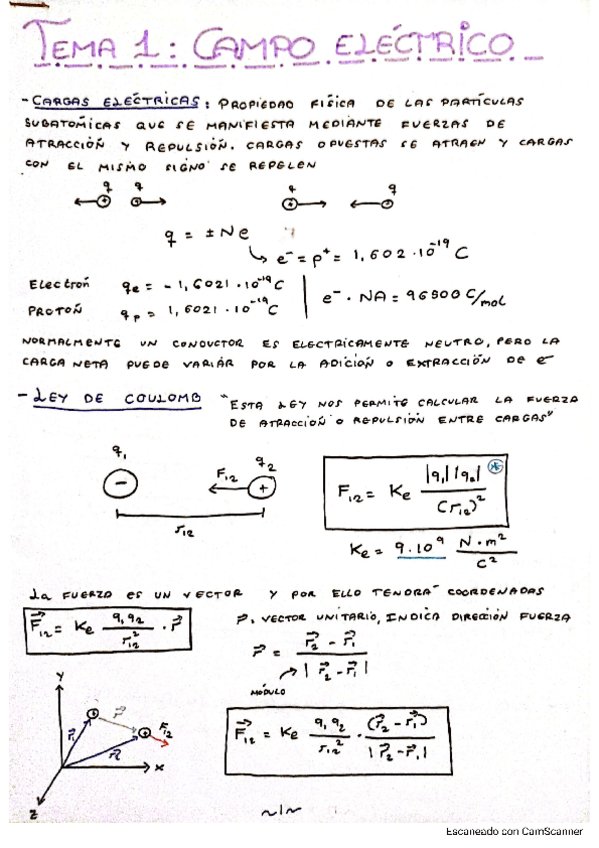 TEMA 1: CAMPO ELÉCTRICO
- CARGAS ELÉCTRICAS: PROPIEDAD FISICA DE LAS PARTÍCULAS
SUBATÓMICAS QUE SE MANIFIESTA MEDIANTE FUERZAS DE
ATRACCIÓN Y REPULSIÓN. CARGAS OPUESTAS SE ATRAEN Y CARGAS
CON EL MISMO SIGNO SE REPELEN
q q q q
+ + + -
q = ±Ne
e⁻ = p⁺ = 1,602·10⁻¹⁹ C
Electrón qe = -1,6021·10⁻¹⁹ C
e⁻·NA = 96500 C/mol
PROTÓN qp = 1,6021·10⁻¹⁹ C
NORMALMENTE UN CONDUCTOR ES ELECTRICAMENTE NEUTRO, PERO LA
CARGA NETA PUEDE VARIÁR POR LA ADICIÓN O EXTRACCIÓN DE e⁻
- LEY DE COULOMB "ESTA LEY NOS PERMITE CALCULAR LA FUERZA
DE ATRACCIÓN O REPULSIÓN ENTRE CARGAS"
q₁ F₁₂ q₂
- +
r₁₂
F₁₂ = Ke |q₁||q₂| / (r₁₂)² *
Ke = 9·10⁹ N·m² / C²
La FUERZA ES UN VECTOR Y POR ELLO TENDRÁ COORDENADAS
F⃗₁₂ = Ke q₁q₂ / r₁₂² · r⃗
r⃗: VECTOR UNITARIO, INDICA DIRECCIÓN FUERZA
r⃗ = r⃗₂ - r⃗₁ / |r⃗₂ - r⃗₁|
MÓDULO
Y + r⃗ + F₁₂
r⃗₁ r⃗₂
X
Z
F⃗₁₂ = Ke q₁q₂ / r₁₂² · (r⃗₂ - r⃗₁) / |r⃗₂ - r⃗₁|
~1~
Escaneado con CamScanner